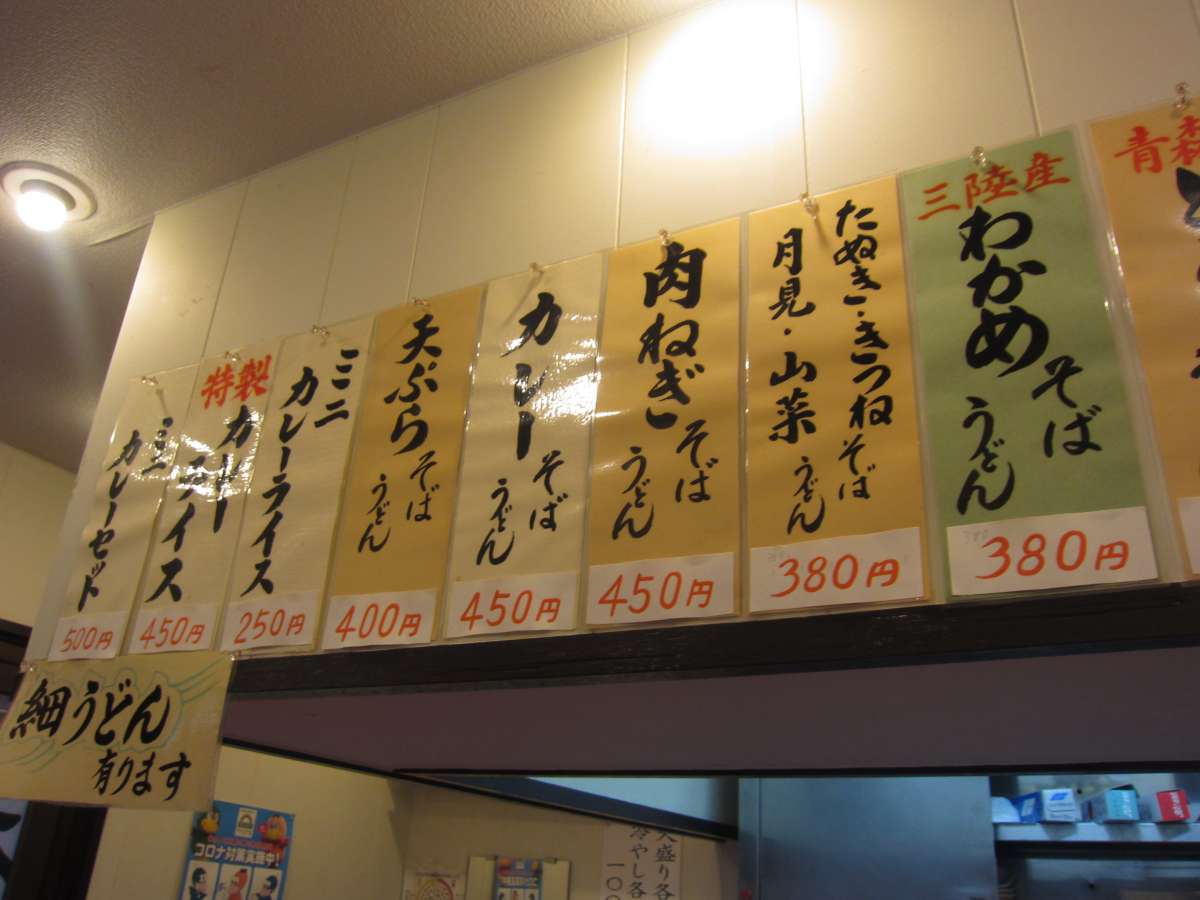 青森
三陸産
わかめ
そば
うどん
380円
たぬき・きつねそば
月見・山菜うどん
380円
肉ねぎ
そば
うどん
450円
カレー
そば
うどん
450円
天ぷら
そば
うどん
400円
ミニ
カレーライス
250円
特製
カレー
ライス
450円
ミニ
カレーセット
500円
細うどん
有ります
コロナ対策実施中!
大盛り各
冷やし各
一〇〇